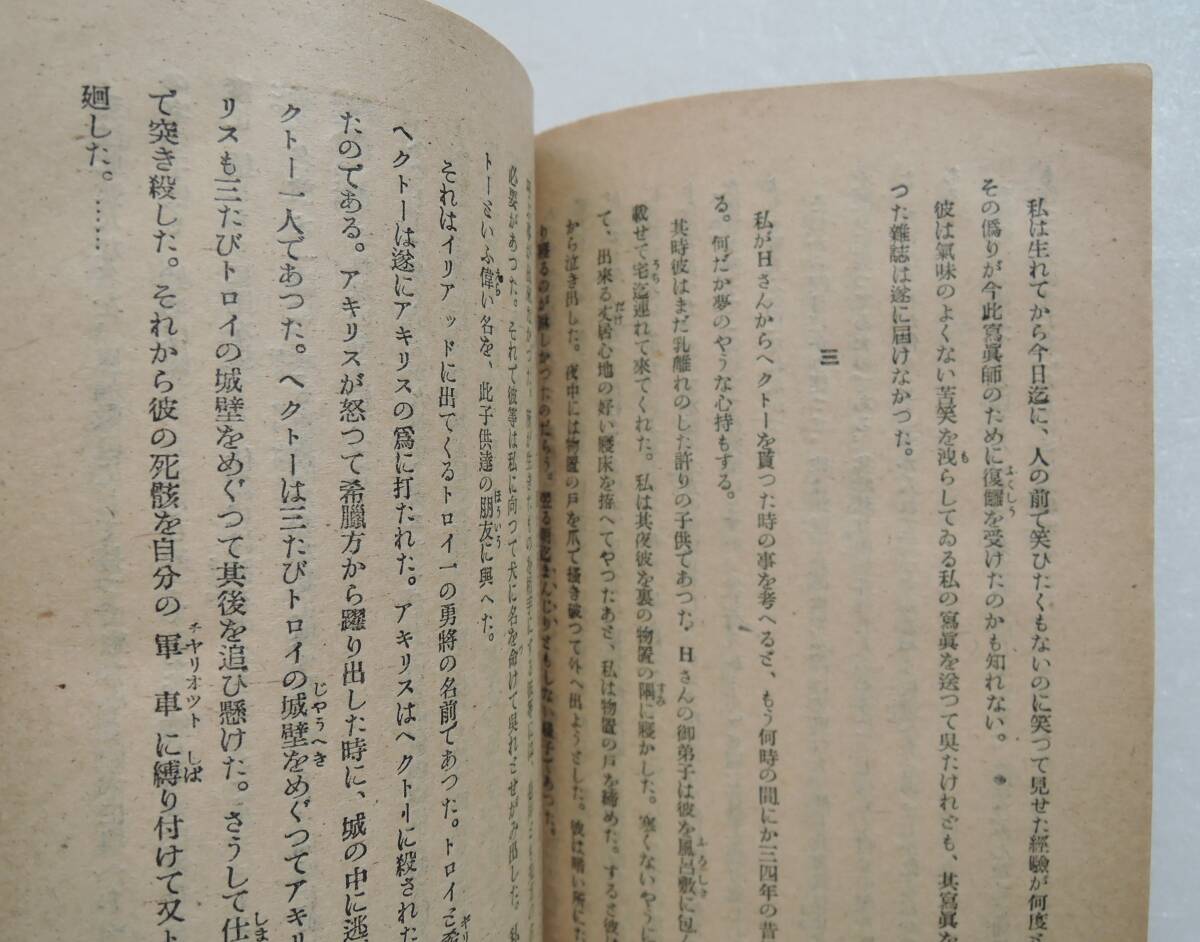 私は生れてから今日迄に、人の前で笑ひたくもないのに笑つて見せた經驗が何度
その僞りが今此寫眞師のために復讐を受けたのかも知れない。
彼は氣味のよくない苦笑を洩らしてゐる私の寫眞を送つて呉たけれども、其寫眞を
つた雜誌は遂に屆けなかつた。
三
私がHさんからヘクトーを貰つた時の事を考へると、もう何時の間にか三四年の昔
る。何だか夢のやうな心持もする。
其時彼はまだ乳離れのした許りの子供であつた。Hさんの御弟子は彼を風呂敷に包ん
載せて宅迄連れて來てくれた。私は其夜彼を裏の物置の隅に寢かした。寒くないやうに
て、出來る丈居心地の好い寢床を拵へてやつたあと、私は物置の戸を締めた。すると彼は
から泣き出した。夜中には物置の戸を爪で掻き破つて外へ出ようとした。彼は暗い所にた
り寢るのが淋しかつたのだらう、翌る朝迄まんじりともしない樣子であつた。
必要があつた。それで彼等は私に向つて犬に名を命けて呉れとせがみ出した。私
トーといふ偉い名を、此子供達の朋友に與へた。
それはイリアッドに出てくるトロイ一の勇將の名前であつた。トロイと希
ヘクトーは遂にアキリスの爲に打たれた。アキリスはヘクトーに殺された
たのである。アキリスが怒つて希臘方から躍り出した時に、城の中に逃
クトー一人であつた。ヘクトーは三たびトロイの城壁をめぐつてアキリ
リスも三たびトロイの城壁をめぐつて其後を追ひ懸けた。さうして仕
で突き殺した。それから彼の死骸を自分の軍車に縛り付けて又ト
廻した。……